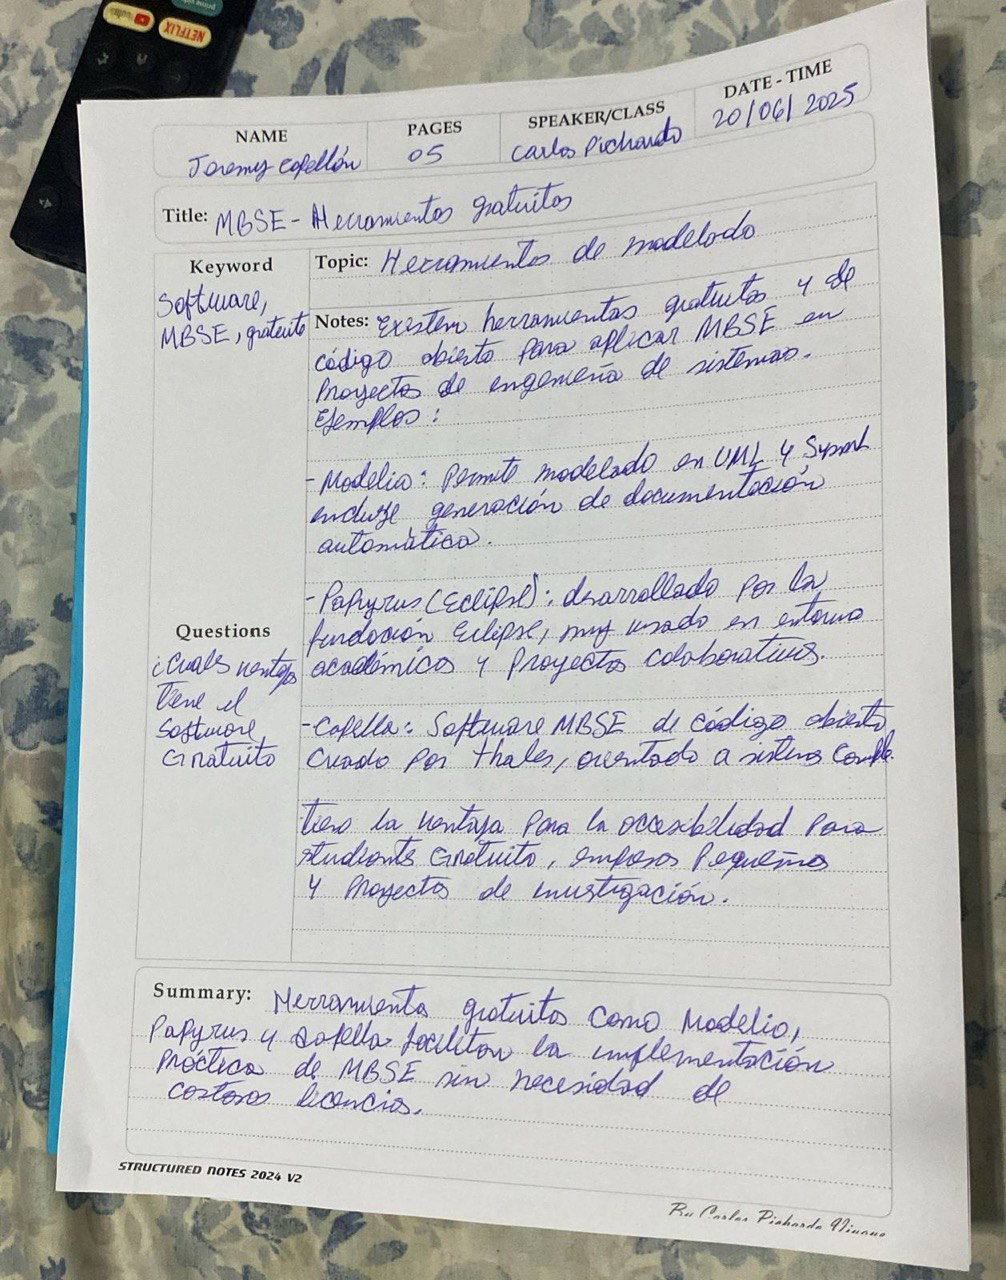 prime video
YouTube
NETFLIX
NAME
PAGES
SPEAKER/CLASS
DATE - TIME
Jeremy Capellón
05
Carlos Pichardo
20/06/2025
Title: MBSE - Herramientas gratuitas
Keyword
Software,
MBSE, gratuito
Topic: Herramientas de modelado
Notes: Existen herramientas gratuitas y de
código abierto para aplicar MBSE en
Proyectos de engeniería de sistemas.
Ejemplos:
- Modelio: Permite modelado en UML y Sysml
incluye generación de documentación
automática.
- Papyrus (Eclipse): desarrollado por la
fundación Eclipse, muy usado en entorno
académicos y Proyectos colaborativos.
- Capella: Software MBSE de código abierto,
creado por thales, orientado a sistemas
Questions
¿Cuales ventajas
tiene el
software
Gratuito
la ventaja para la accesibilidad para
studiants Gratuito, empresas Pequeñas
y Proyectos de investigación.
Summary: Herramienta gratuitas como Modelio,
Papyrus y Capella facilitan la implementación
Práctica de MBSE sin necesidad de
costosas licencias.
STRUCTURED NOTES 2024 V2
By Carlos Pichardo